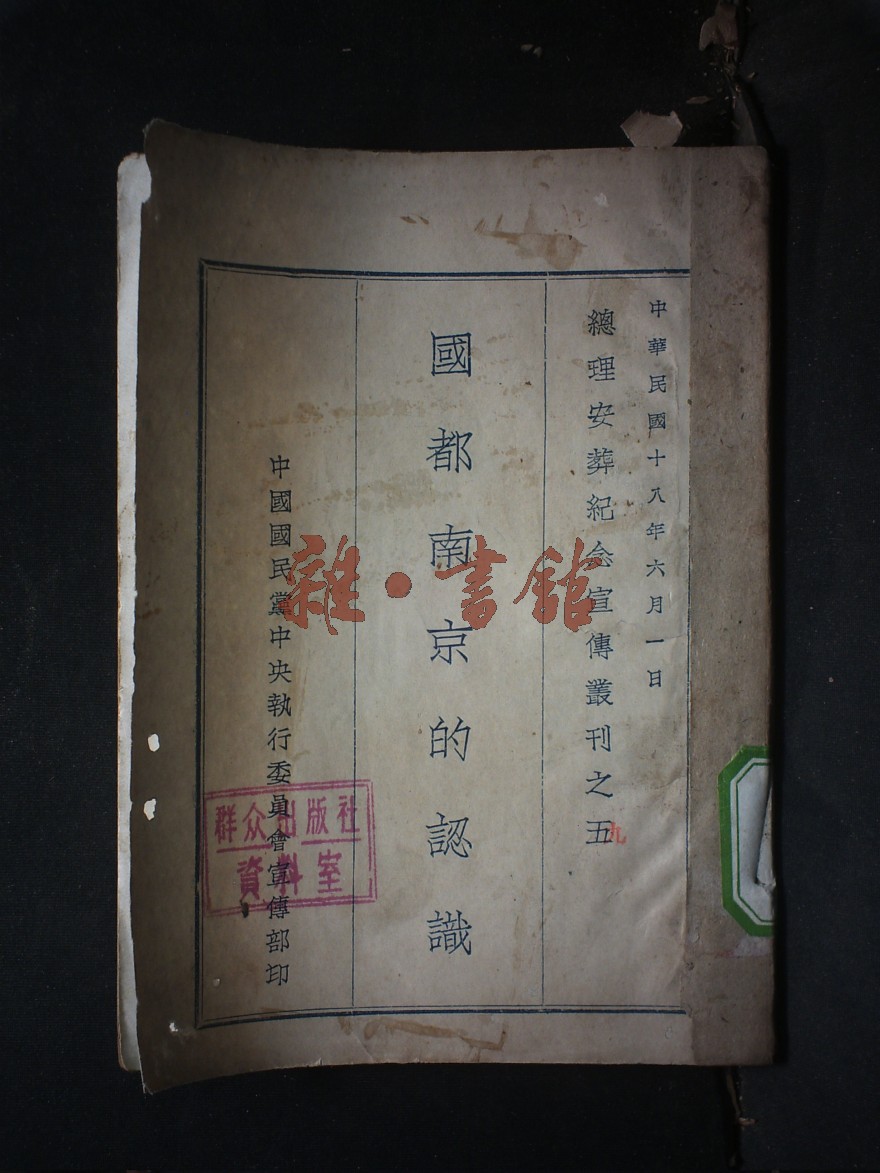 中華民國十八年六月一日
總理安葬紀念宣傳叢刊之五
九
國都南京的認識
中國國民黨中央執行委員會宣傳部印
群众出版社
資料室
雜·書館